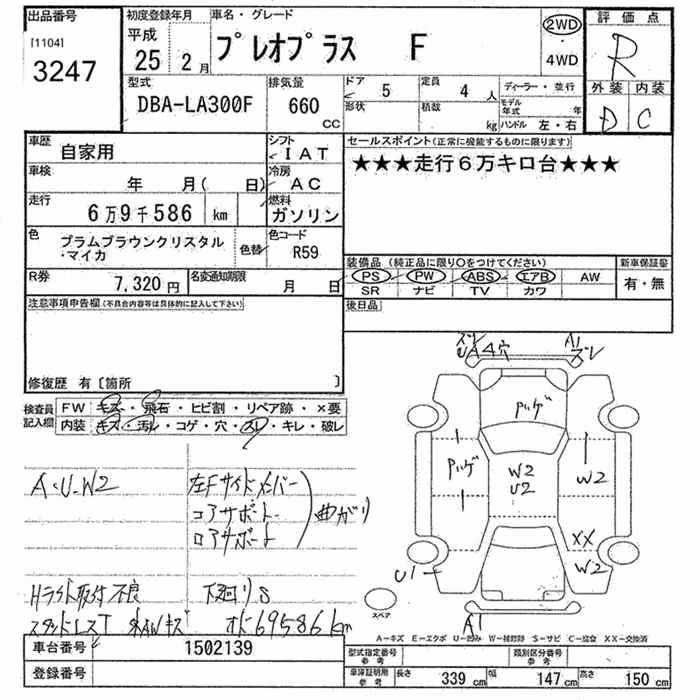 出品番号
[1104]
3247
初度登録年月
平成
25 年 2 月
車名・グレード
プレオプラス F
2WD
・
4WD
評価点
R
外装 内装
D C
型式
DBA-LA300F
排気量
660 CC
ドア 5
定員 4 人
形状
積載 kg
ディーラー・並行
モデル年式 年
ハンドル 左・右
車歴
自家用
シフト
IAT
車検
年 月( 日)
冷房
AC
走行
6万9千586 km
燃料
ガソリン
色
プラムブラウンクリスタル
・マイカ
色替
色コード
R59
R券
7,320 円
名変通知期限
月 日
セールスポイント(正常に機能するものに限ります)
★★★走行6万キロ台★★★
装備品(純正品に限り○をつけてください)
PS PW ABS エアB AW
SR ナビ TV カワ
新車保証書
有・無
注意事項申告欄(不具合内容等は具体的に記入して下さい)
後日品
修復歴 有〔箇所 〕
検査員
記入欄
FW キズ・飛石・ヒビ割・リペア跡・×要
内装 キズ・汚レ・コゲ・穴・スレ・キレ・破レ
A・U・W2
左Fサイドメンバー
コアサポート
ロアサポート
曲がり
Hライト取付不良
下廻りS
スタッドレスT
オド69586km
ズレ
UA4穴
A1
ズレ
Pハゲ
Pハゲ
W2
U2
W2
XX
W2
U1
A1
スペア
A−キズ E−エクボ U−凹み W−補修跡 S−サビ C−腐食 XX−交換済
車台番号
1502139
登録番号
型式指定番号
参考
類別区分番号
参考
車庫証明用
参考
長さ 339 cm 幅 147 cm 高さ 150 cm